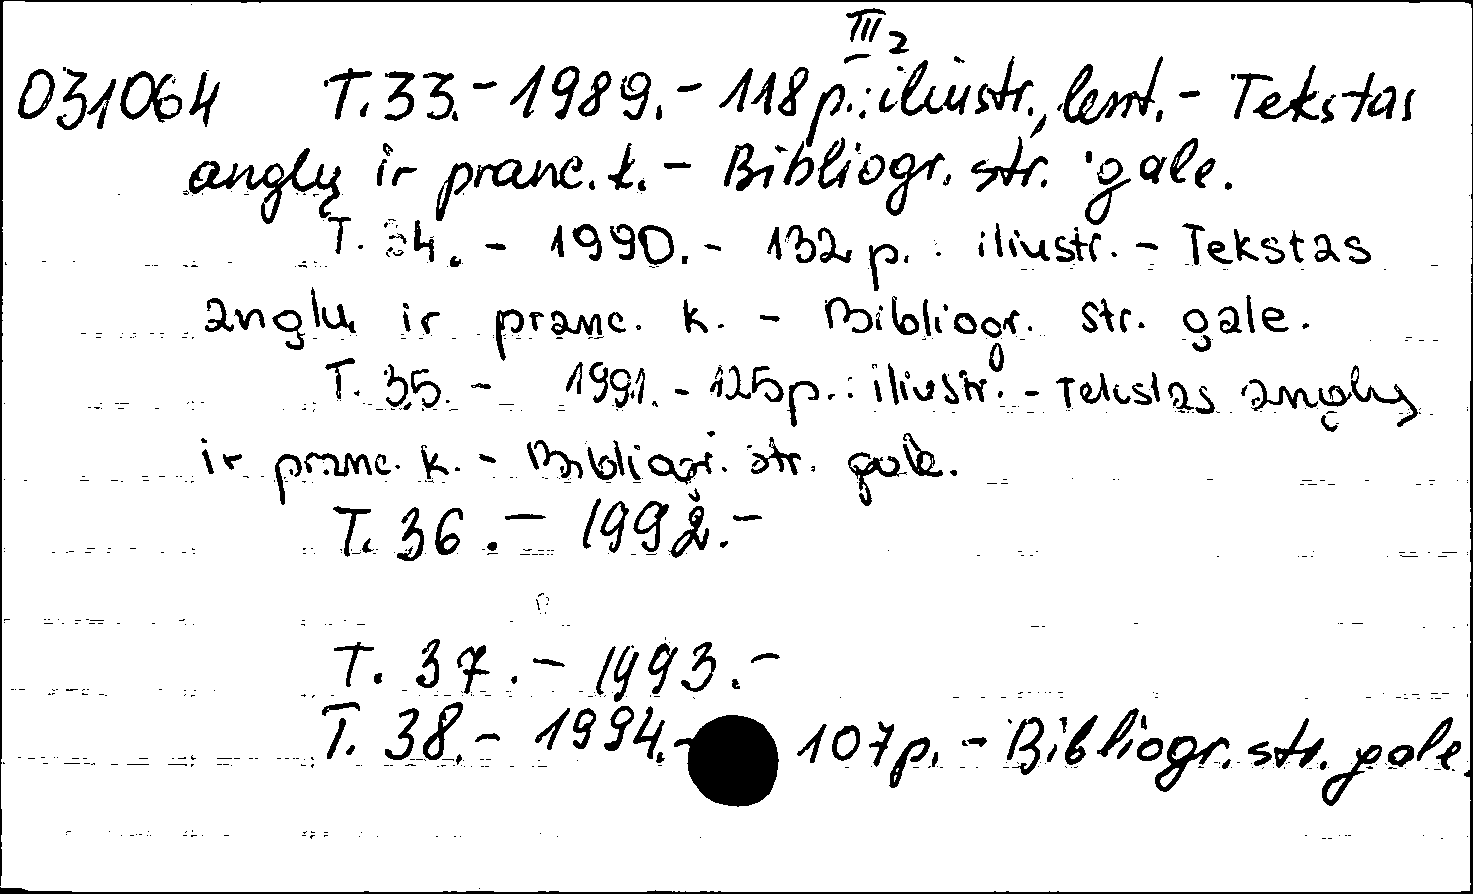 III2
031064 T.33.- 1989.- 118 p.: iliustr., lent.- Tekstas
anglų ir pranc. k.- Bibliogr. str. gale.
T. 34. - 1990. - 132 p. : iliustr. - Tekstas
anglų ir pranc. k. - Bibliogr. str. gale.
T. 35. - 1991. - 125 p. : iliustr. - Tekstas anglų
ir pranc. k. - Bibliogr. str. gale.
T. 36. - 1992. -
T. 37. - 1993. -
T. 38. - 1994. - 107 p. - Bibliogr. str. gale.